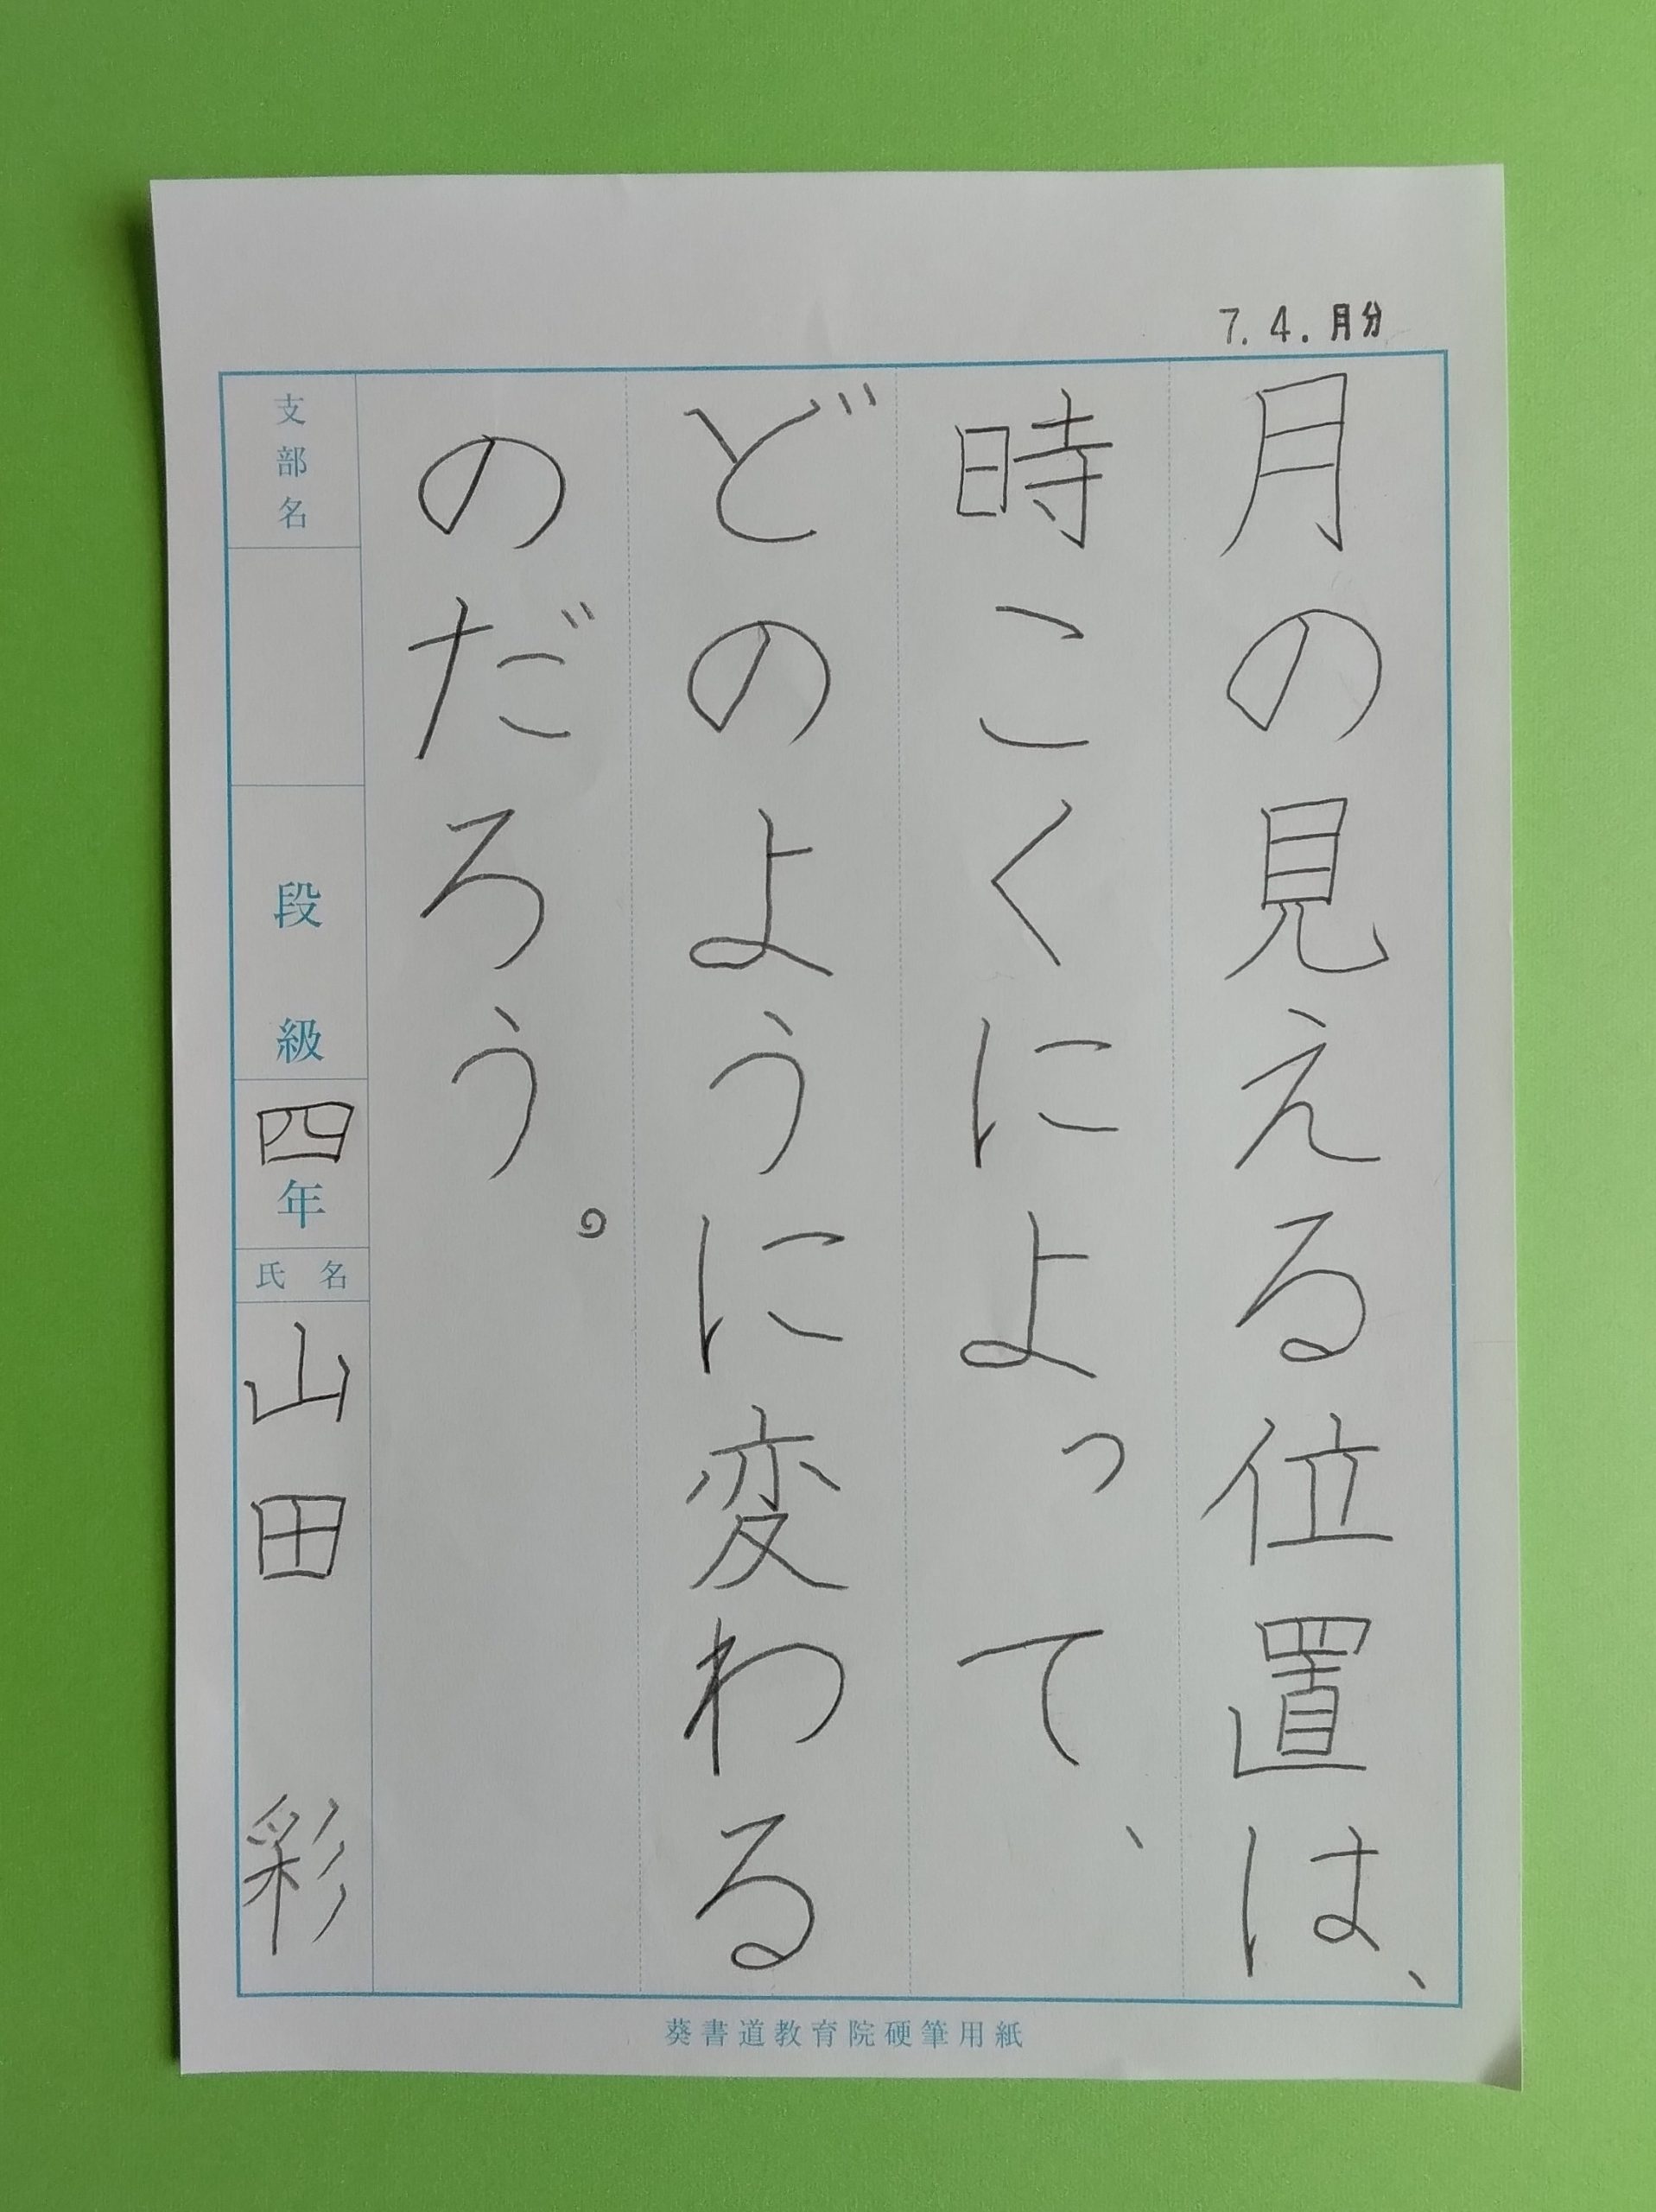 7.4.月分
月の見える位置は、
時こくによって、
どのように変わる
のだろう。
支部名
段級
四年
氏名
山田 彩
葵書道教育院硬筆用紙